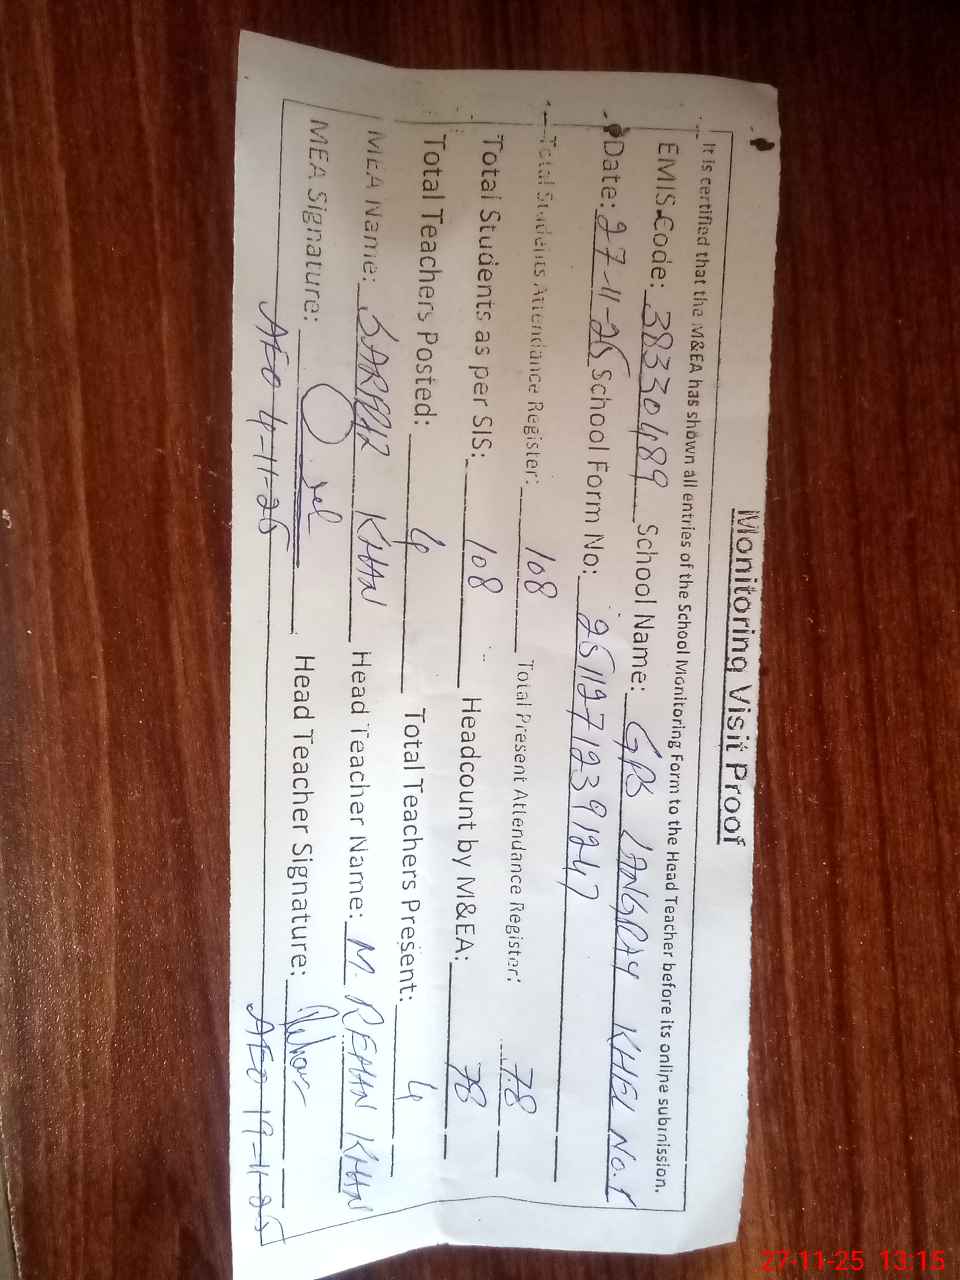 Monitoring Visit Proof
It is certified that the M&EA has shown all entries of the School Monitoring Form to the Head Teacher before its online submission.
EMIS Code: 38330489 School Name: GPS LANGRAY KHEL No.1
Date: 27-11-25 School Form No: 25112712391247
Total Students Attendance Register: 108 Total Present Attendance Register: 78
Total Students as per SIS: 108 Headcount by M&EA: 78
Total Teachers Posted: 4 Total Teachers Present: 4
MEA Name: SARDAR KHAN Head Teacher Name: M. REHAN KHAN
MEA Signature: Head Teacher Signature:
AEO 4-11-25 AEO 19-11-25
27-11-25 13:15